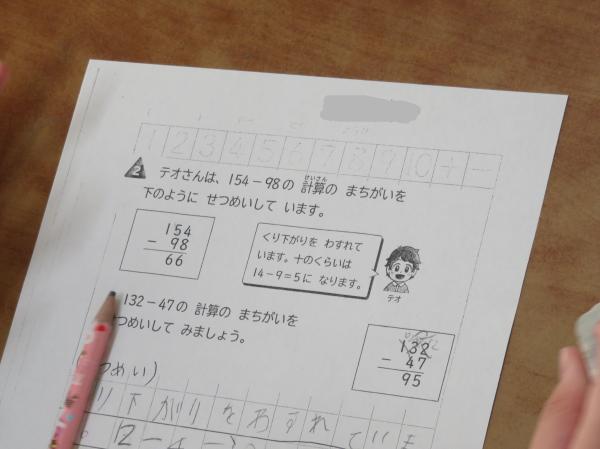 1 2 3 4 5 6 7 8 9 10 + −
2 テオさんは、154−98の 計算の まちがいを
せいさん
下のように せつめいして います。
154
− 98
66
くり下がりを わすれて
います。十のくらいは
14−9=5に なります。
テオ
132−47の 計算の まちがいを
つめいして みましょう。
132
− 47
95
つめい)
り下がりをわすれていま
12−4−